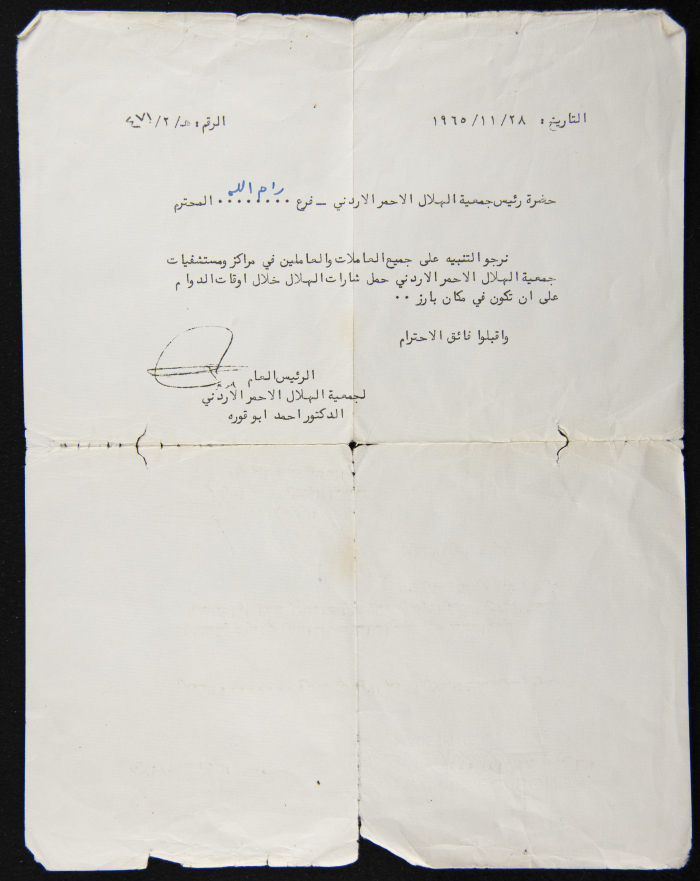 التاريخ: ١٩٦٥/١١/٢٨
الرقم: هـ/٢/٤٧١
حضرة رئيس جمعية الهلال الاحمر الاردني ــ فرع ........ رام الله المحترم
نرجو التنبيه على جميع العاملات والعاملين في مراكز ومستشفيات
جمعية الهلال الاحمر الاردني حمل شارات الهلال خلال اوقات الدوام
على ان تكون في مكان بارز ..
واقبلوا فائق الاحترام
الرئيس العام
لجمعية الهلال الاحمر الاردني
الدكتور احمد ابو قوره